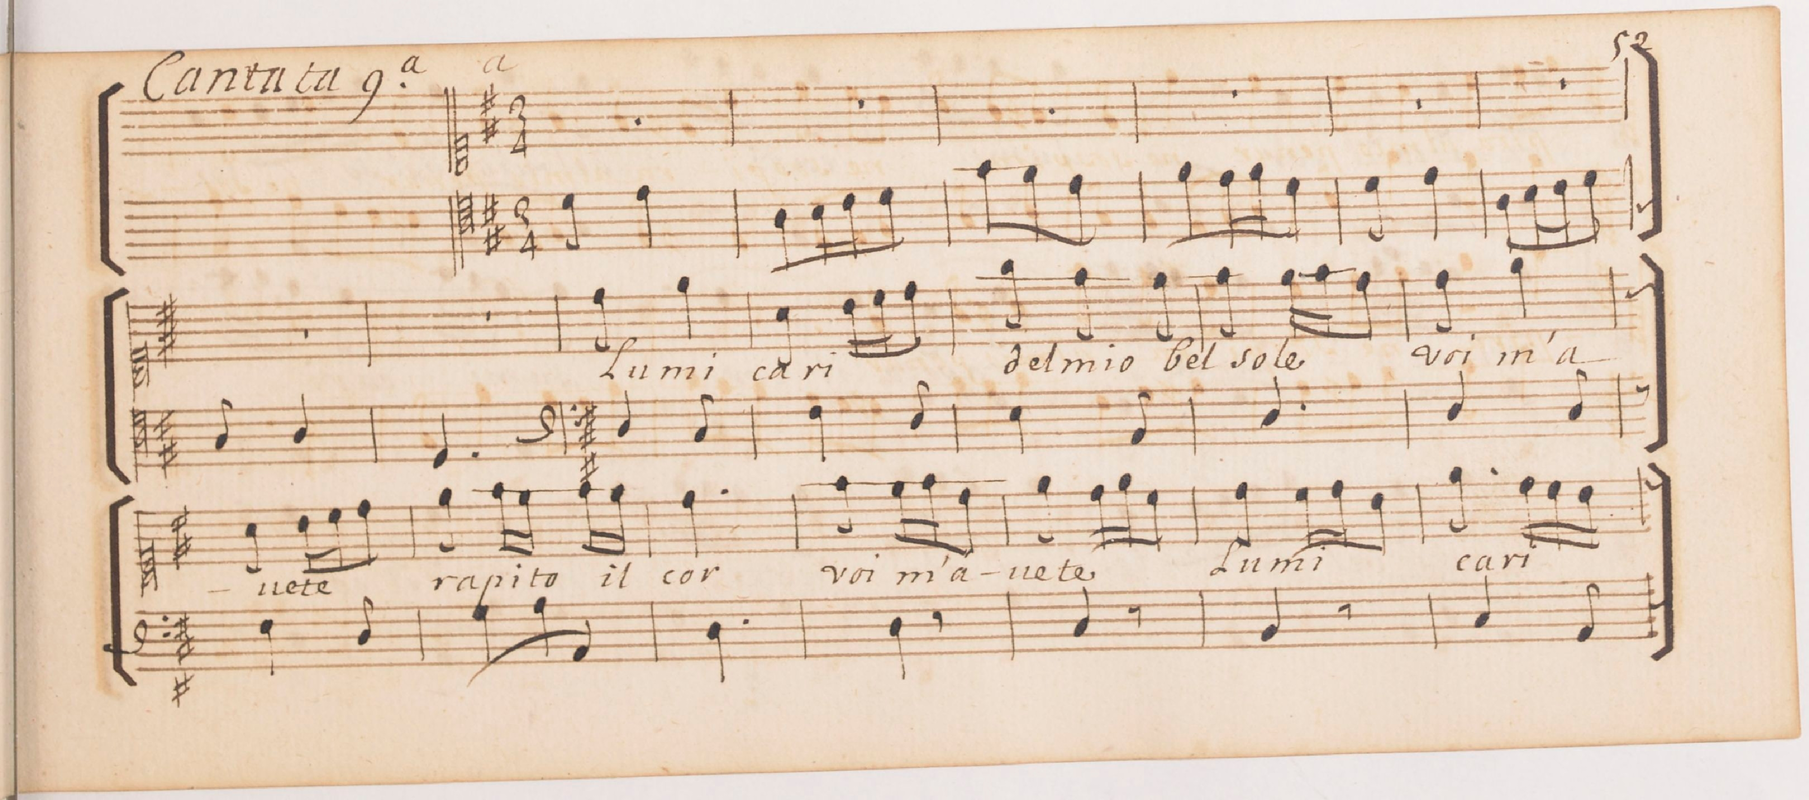 Cantata 9.ª a
52
3
4
3
4
Lumi cari del mio bel sole voi m'a-
- uete rapito il cor voi m'a-uete Lumi cari